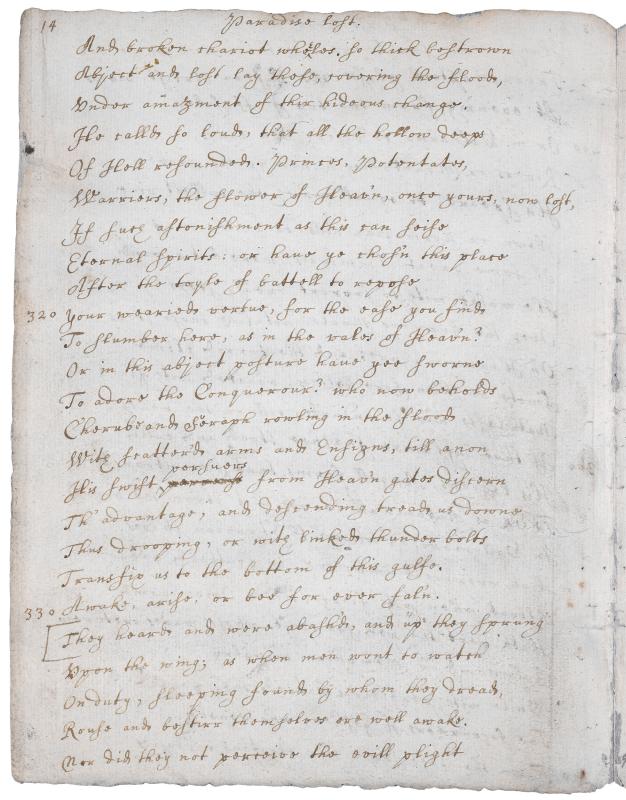 14 Paradise lost.
And broken chariot wheles. so thick bestrown
Abject and lost lay these, covering the flood,
Vnder amazment of thir hideous change.
He calld so loud, that all the hollow deepe
Of Hell resounded. Princes, Potentates,
Warriers, the flower of Heav'n, once yours, now lost,
If such astonishment as this can seise
Eternal spirits: or have ye chos'n this place
After the toyle of battell to repose
320 your wearied vertue, for the ease you find
To slumber here, as in the vales of Heav'n?
Or in this abject posture have yee sworne
To adore the Conquerour? who now beholds
Cherube and Seraph rowling in the flood
With scatterd arms and Ensigns, till anon
persuers
His swift from Heav'n gates discern
Th' advantage, and descending tread us downe
Thus drooping; or with linked thunder bolts
Transfix us to the bottom of this gulfe.
330 Awake, arise, or bee for ever fal'n.
They heard and were abash'd, and up they sprung
Vpon the wing; as when men wont to watch
On duty, sleeping found by whom they dread,
Rouse and bestirr themselves ere well awake.
Nor did they not perceive the evill plight